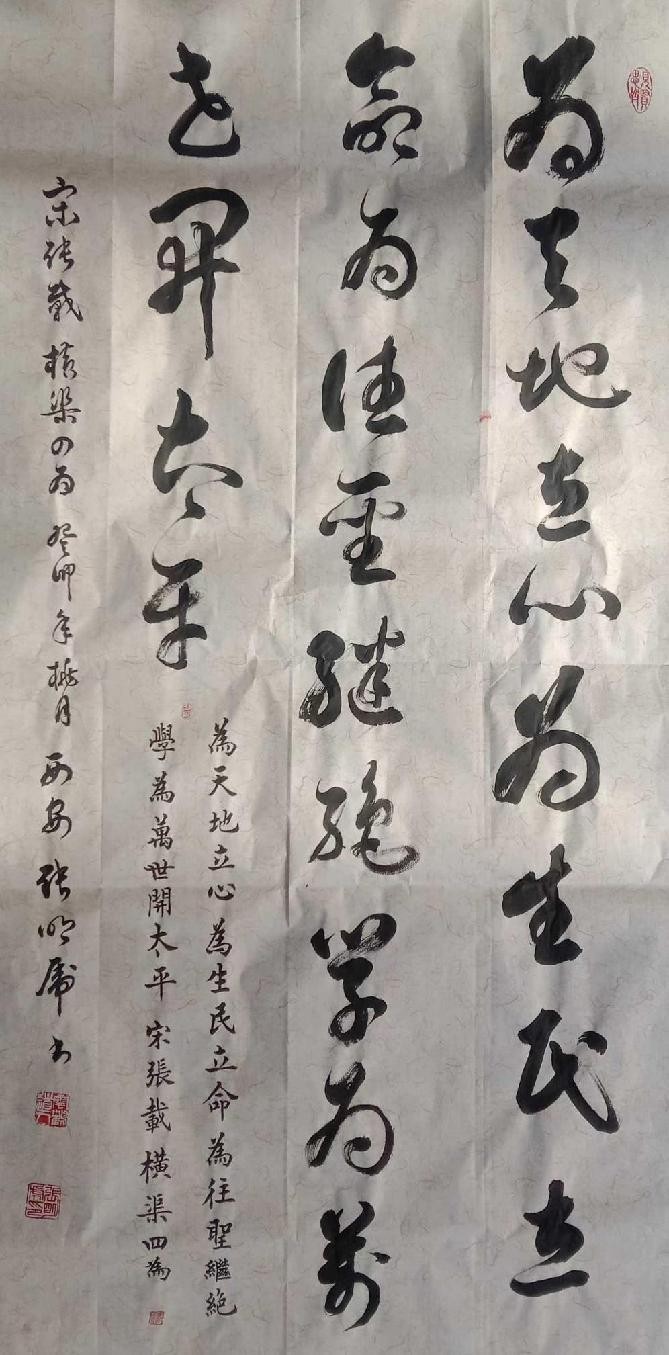 為天地立心為生民立
命為往聖繼絕學為萬
世開太平
為天地立心為生民立命為往聖繼絕
學為萬世開太平 宋張載 橫渠四為
宋张載 橫渠の為 癸卯年桃月 西安 张明虎书